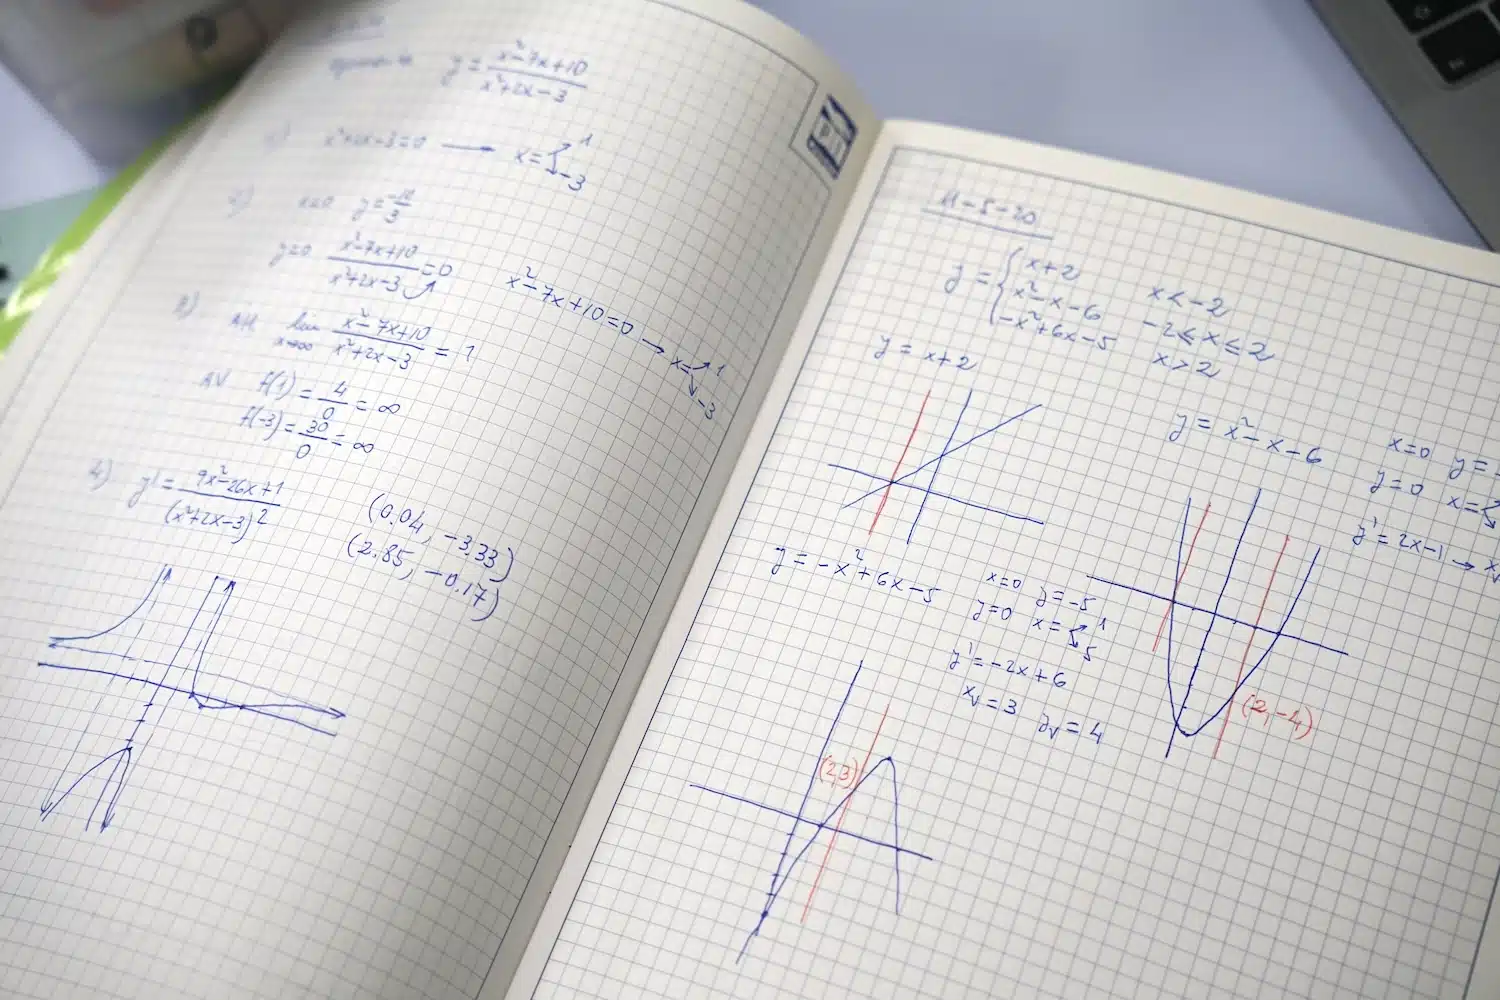 y = x²-7x+10 / x²+2x-3
x²+2x-3=0 → x= 1
-3
2)
x=0 y= -10/3
y=0 x²-7x+10 / x²+2x-3 =0
x²-7x+10=0 → x= 1
-3
3) AH lim x→∞ x²-7x+10 / x²+2x-3 = 1
AV f(1) = 4/0 = ∞
f(-3) = 30/0 = ∞
4) y' = 9x²-26x+1 / (x²+2x-3)²
(0.04, -3.33)
(2.85, -0.17)
11-5-20
y = { x+2 x<-2
x²-x-6 -2≤x≤2
-x²+6x-5 x>2
y = x+2
y = x²-x-6
x=0 y=-
y=0 x=
y'=2x-1 → x
(2,-4)
y = -x²+6x-5
x=0 y=-5
y=0 x= 1
5
y'=-2x+6
xᵥ=3 yᵥ=4
(2,3)